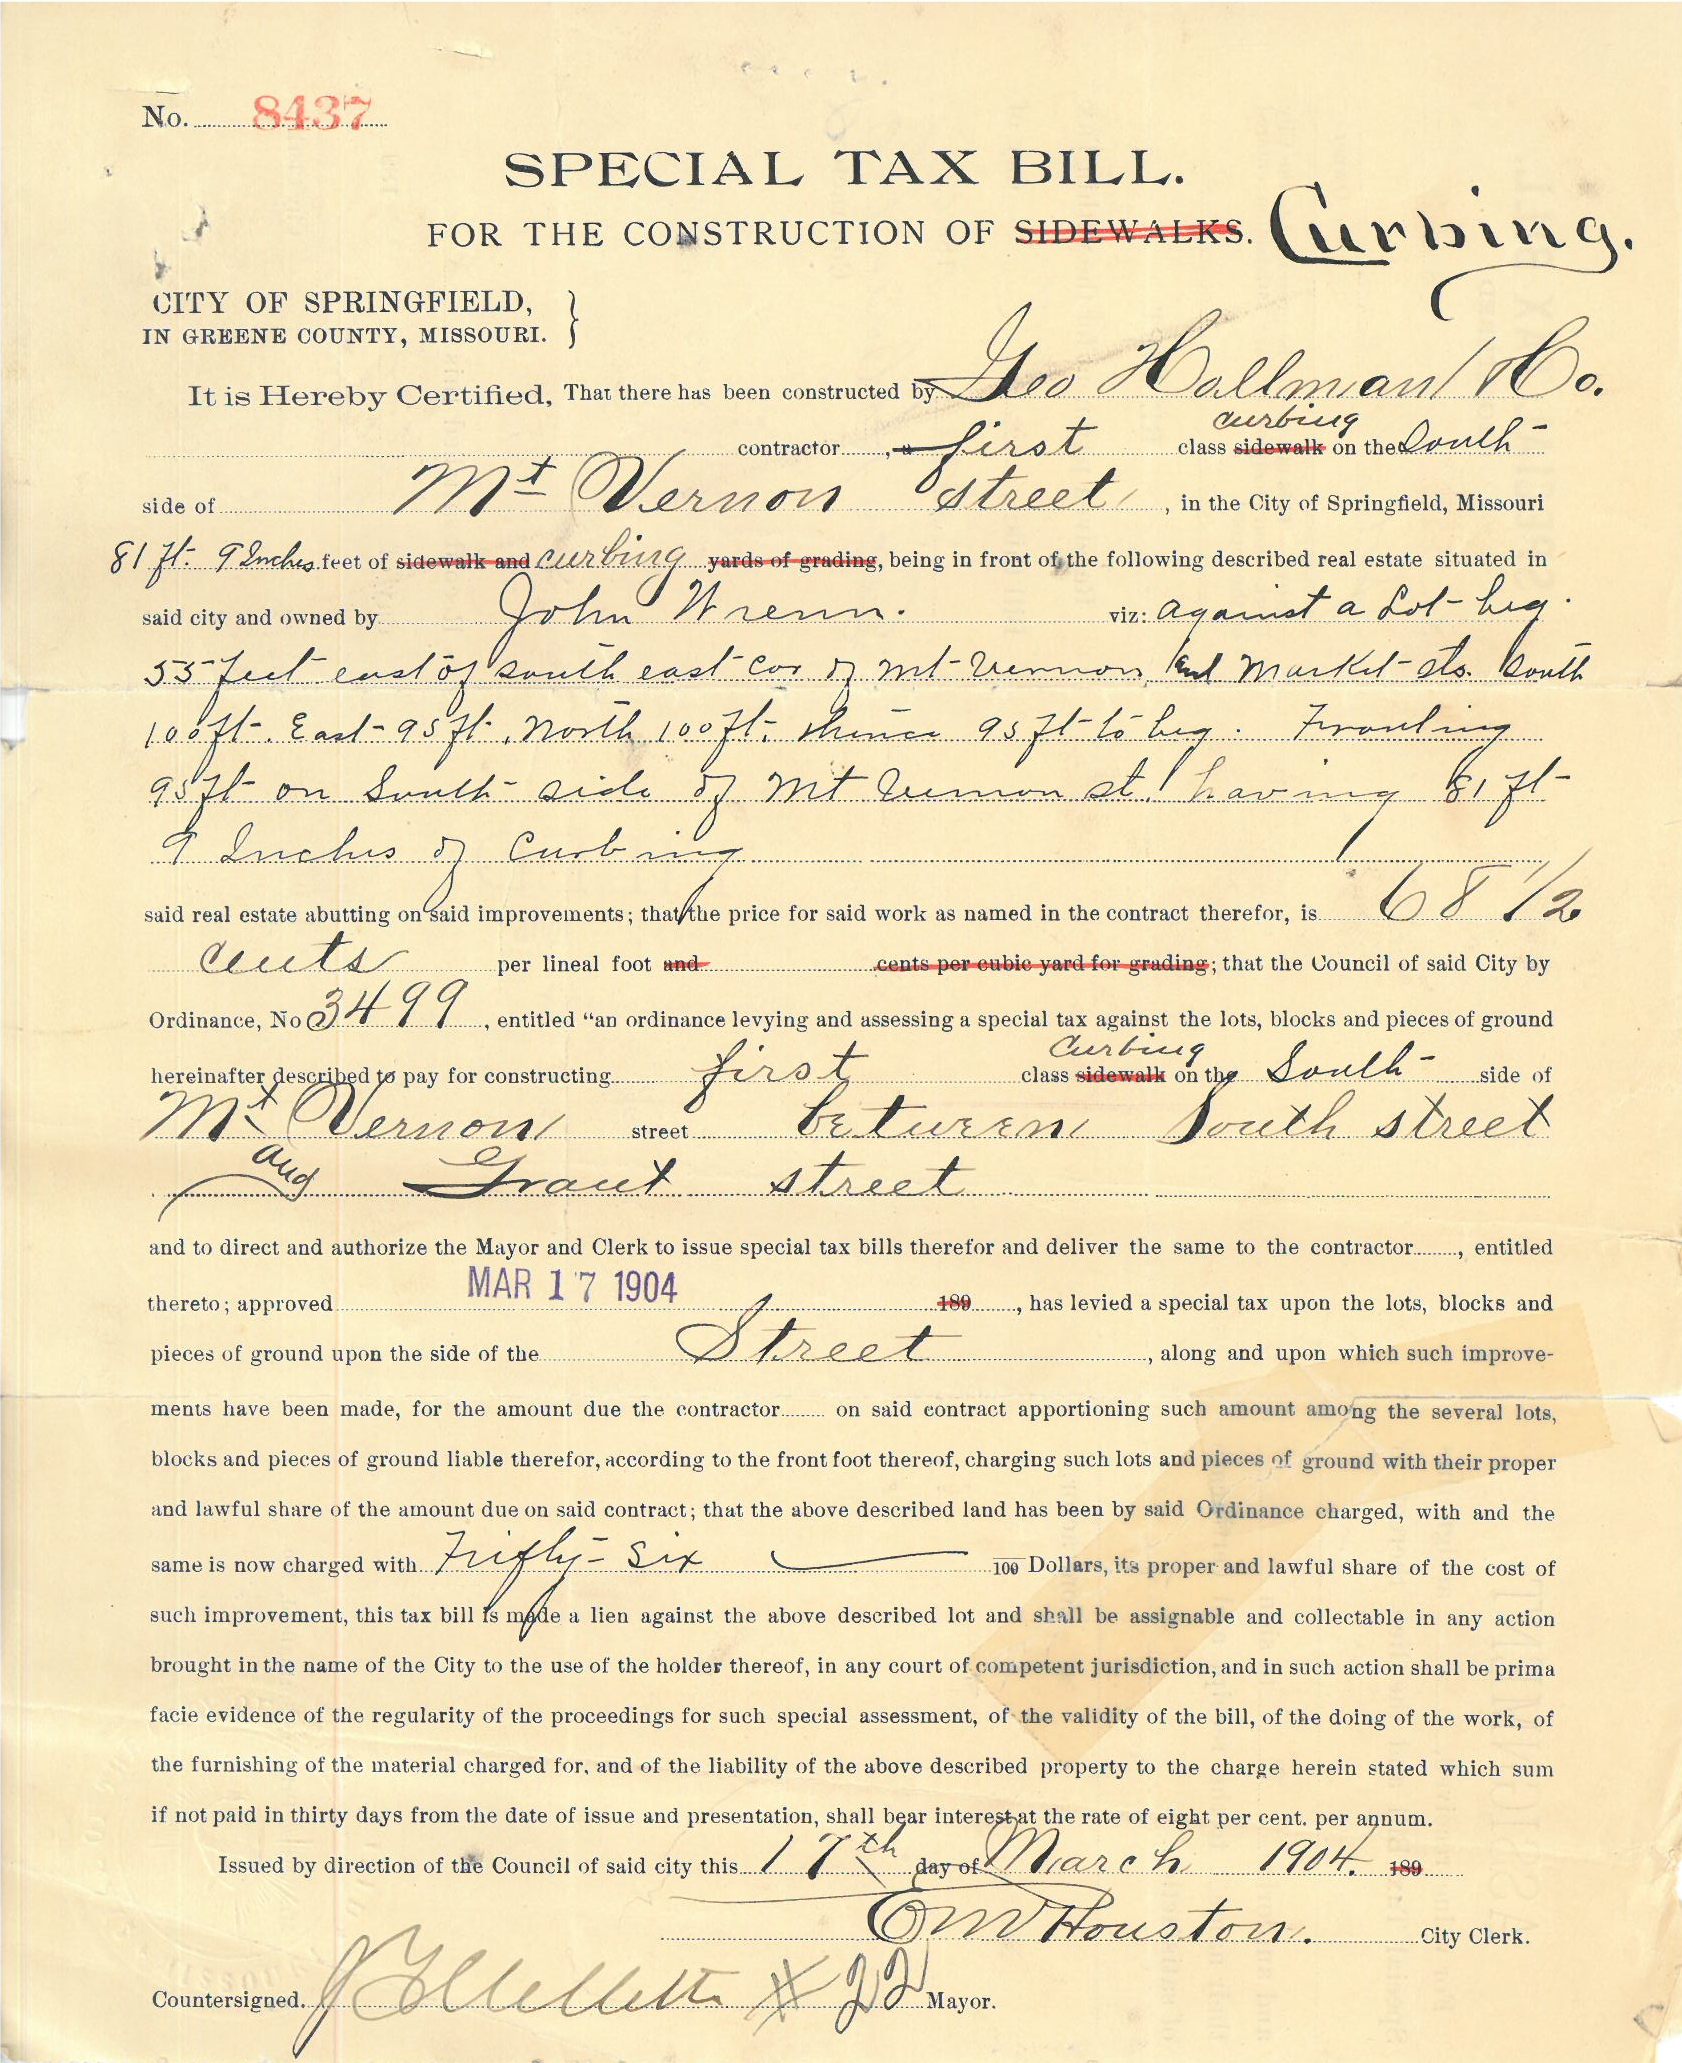 No. 8437
SPECIAL TAX BILL.
FOR THE CONSTRUCTION OF SIDEWALKS. Curbing.
CITY OF SPRINGFIELD,
IN GREENE COUNTY, MISSOURI.
It is Hereby Certified, That there has been constructed by Geo Hollman & Co.
curbing
contractor , a first class sidewalk on the South
side of Mt Vernon Street , in the City of Springfield, Missouri
81 ft. 9 Inches feet of sidewalk and curbing yards of grading, being in front of the following described real estate situated in
said city and owned by John Wrenn. viz: against a Lot beg.
55 feet east of south east cor of Mt Vernon and Market sts. South
100 ft. East 95 ft. North 100 ft. thence 95 ft to beg. Fronting
95 ft on South side of Mt Vernon st. having 81 ft
9 Inches of Curbing
said real estate abutting on said improvements; that the price for said work as named in the contract therefor, is 68 1/2
cents per lineal foot and cents per cubic yard for grading; that the Council of said City by
Ordinance, No 3499 , entitled "an ordinance levying and assessing a special tax against the lots, blocks and pieces of ground
Curbing
hereinafter described to pay for constructing first class sidewalk on the South side of
Mt Vernon street between South street
and Grant street
and to direct and authorize the Mayor and Clerk to issue special tax bills therefor and deliver the same to the contractor , entitled
thereto; approved MAR 17 1904 189 , has levied a special tax upon the lots, blocks and
pieces of ground upon the side of the Street , along and upon which such improve-
ments have been made, for the amount due the contractor on said contract apportioning such amount among the several lots,
blocks and pieces of ground liable therefor, according to the front foot thereof, charging such lots and pieces of ground with their proper
and lawful share of the amount due on said contract; that the above described land has been by said Ordinance charged, with and the
same is now charged with Fifty-Six 100 Dollars, its proper and lawful share of the cost of
such improvement, this tax bill is made a lien against the above described lot and shall be assignable and collectable in any action
brought in the name of the City to the use of the holder thereof, in any court of competent jurisdiction, and in such action shall be prima
facie evidence of the regularity of the proceedings for such special assessment, of the validity of the bill, of the doing of the work, of
the furnishing of the material charged for, and of the liability of the above described property to the charge herein stated which sum
if not paid in thirty days from the date of issue and presentation, shall bear interest at the rate of eight per cent. per annum.
Issued by direction of the Council of said city this 17th day of March 1904. 189
EW Houston. City Clerk.
Countersigned. # 22 Mayor.